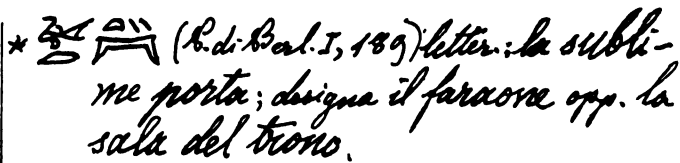 * (P. di Berl. I, 189) letter.: la subli-
me porta; designa il faraone opp. la
sala del trono.